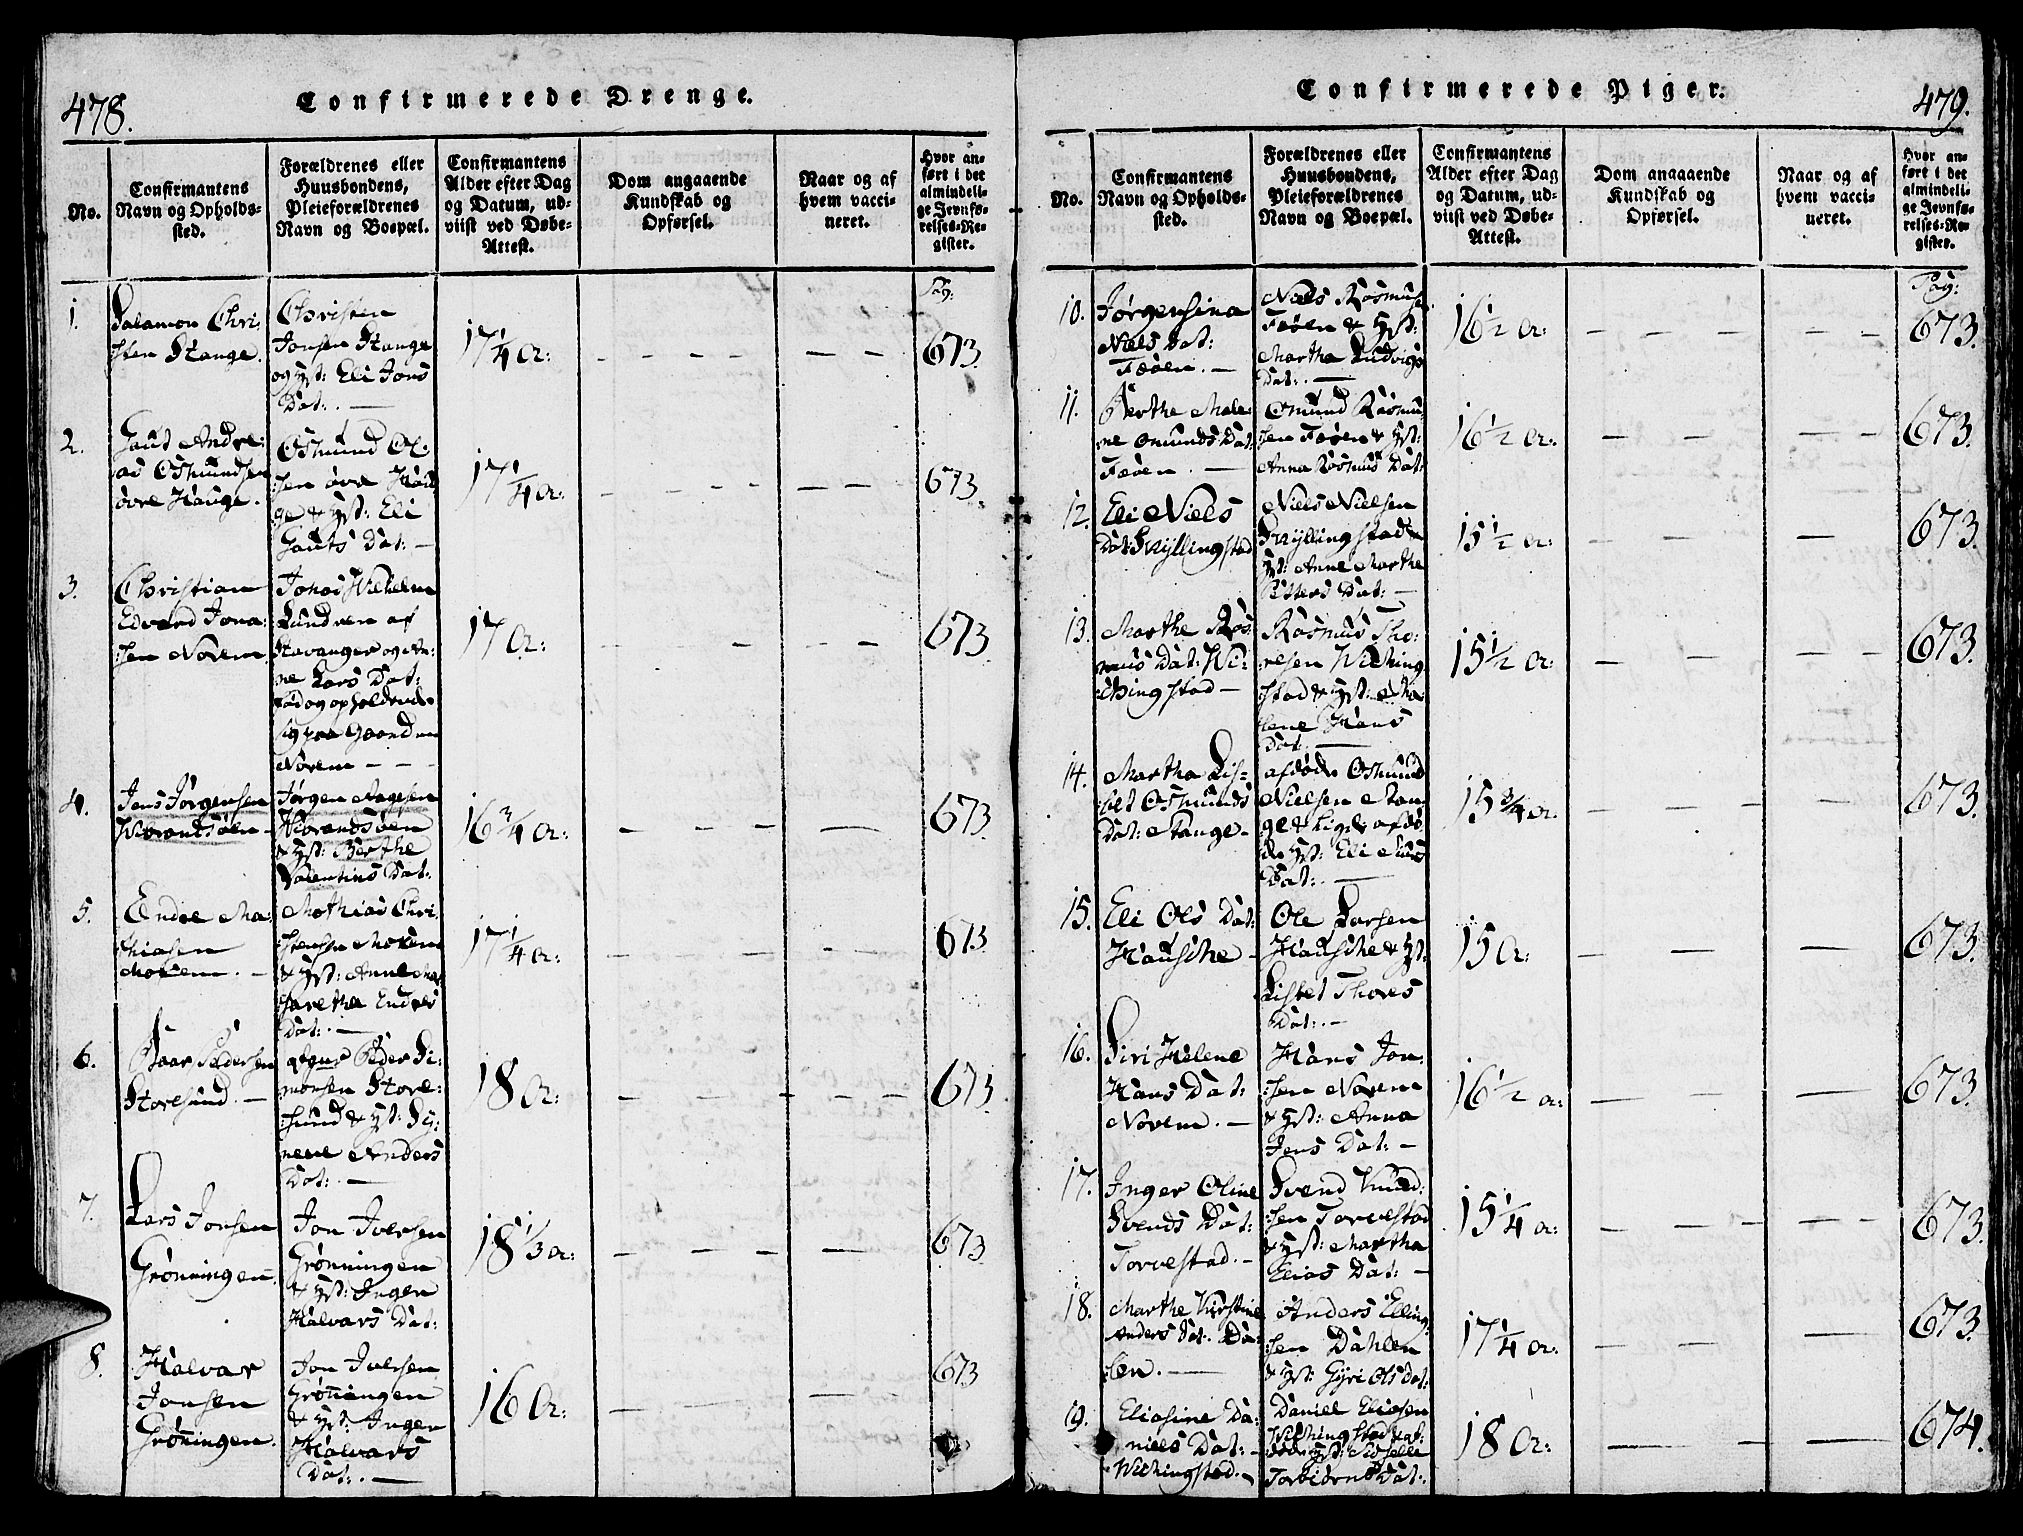 478.
Confirmerede Drenge.
No.
Confirmantens
Navn og Opholds-
sted.
Forældrenes eller
Huusbondens,
Pleieforældrenes
Navn og Boepæl.
Confirmantens
Alder efter Dag
og Datum, ud-
viist ved Døbe-
Attest.
Dom angaaende
Kundskab og
Opførsel.
Naar og af
hvem vacci-
neret.
Hvor an-
ført i det
almindeli-
ge Jevnfø-
relses-Re-
gister.
Pag:
1.
Salamon Chri:
sten Stange.
Christen
Jonsen Stange
og Hst: Eli Jens
Dat:. —
17 1/4 Ar:
673.
2.
Gaut Andre:
as Osmundsen
øvre Hauge.
Osmund Ol:
:sen øvre Hau
ge & Hst: Eli
Gauts Dat: —
17 1/4 Ar:
673.
3.
Christian
Edvard Jona:
:sen Norem
Jonas Wilhelm
Lund af
Stavanger og An:
ne Lars Dat:
Norem — — —
17 Ar:
673
4.
Jens Jørgensen
Wibrandsøen —
Jørgen Aagesen
Wibrandsøen
& Hst: Berthe
Valentins Dat:
16 3/4 Ar:
673.
5.
Endre Ma:
thiasen
Mosem. —
Mathias Chri:
:stensen Mosem
& Hst: Anne Mar
garethe Endres
Dat: —
17 1/4 Ar:
673
6.
Baar Pedersen
Storesund. —
Peder Si:
monsen Store:
:sund & Hst: Sy:
nneve Anders
Dat:. —
18 Ar:
673
7.
Lars Jonsen
Grönningen.
Jon Iversen
Grönningen
& Hst: Inger
Halvars Dat:
18 1/3 Ar:
673
8.
Halvar
Jonsen
Grönningen.
Jon Iversen
Grönningen
& Hst: Inger
Halvars
Dat:. —
16 Ar:
673
Confirmerede Piger.
479.
No.
Confirmantens
Navn og Opholds-
sted.
Forældrenes eller
Huusbondens,
Pleieforældrenes
Navn og Boepæl.
Confirmantens
Alder efter Dag
og Datum, ud-
viist ved Døbe-
Attest.
Dom angaaende
Kundskab og
Opførsel.
Naar og af
hvem vacci-
neret.
Hvor an-
ført i det
almindeli-
ge Jevnfø-
relses-Re-
gister.
Pag:
10.
Jørgensina
Niels Dat:
Fæøen. —
Niels Rasmus
Fæøen & Hst:
Martha Ludvigs
Dat:. —
16 1/2 Ar:
673.
11.
Berthe Male:
ne Omunds Dat:
Fæøen. —
Omund Rasmu:
:sen Fæøen & Hst:
Anna Rasmus Dat:
16 1/2 Ar:
673.
12.
Eli Niels
Dat: Sryllingstad
Niels Nielsen
Sryllingstad &
Hst: Anne Marthe
Dat: —
15 1/2 Ar:
673.
13.
Marthe Ras:
mus Dat: Wi:
chingstad —
Rasmus Tho:
resen Wiching:
:stad & Hst: Ma
lene Hans
Dat:. —
15 1/2 Ar:
673.
14.
Martha Lis:
bet Osmunds
Dat: Stange. —
afdøde Osmund
Nielsen Stan:
ge & Lige: afdø
de Hst: Eli
Dat:. —
15 3/4 Ar:
673.
15.
Eli Ols Dat:
Hauske —
Ole Larsen
Hauske & Hst:
Lisbet Thores
Dat:. —
15 Ar:
673.
16.
Siri Helene
Hans Dat:
Norem. —
Hans Jon:
:sen Norem
& Hst: Anna
Jens Dat: —
16 1/2 Ar:
673.
17.
Inger Oline
Svends Dat:
Torvestad. —
Svend Knud:
:sen Torvestad
& Hst: Martha
Elias Dat: —
15 1/4 Ar:
673.
18.
Marthe Kirstine
Anders Dat: Da:
len. —
Anders Elling:
:sen Dahlen
& Hst: Gyri Olsdat:
17 1/4 Ar:
673.
19.
Eliasine Da:
niels Dat: —
Wichingstad. —
Daniel Eliasen
Wichingstad & af:
døde Hst: Sidselle
Torbiörns Dat:
18 Ar:
674.